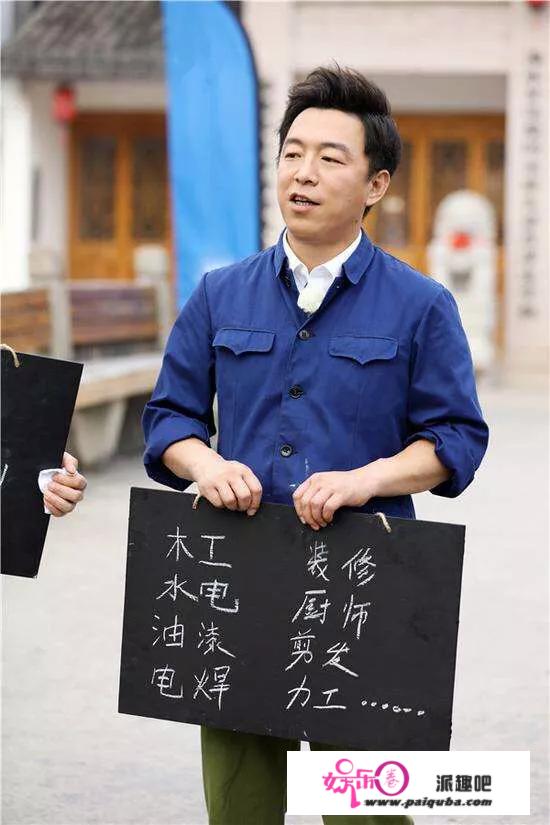 木工 装修
水电 厨师
油漆 剪发
电焊 力工……
娱乐圈 派趣吧
www.paiquba.com